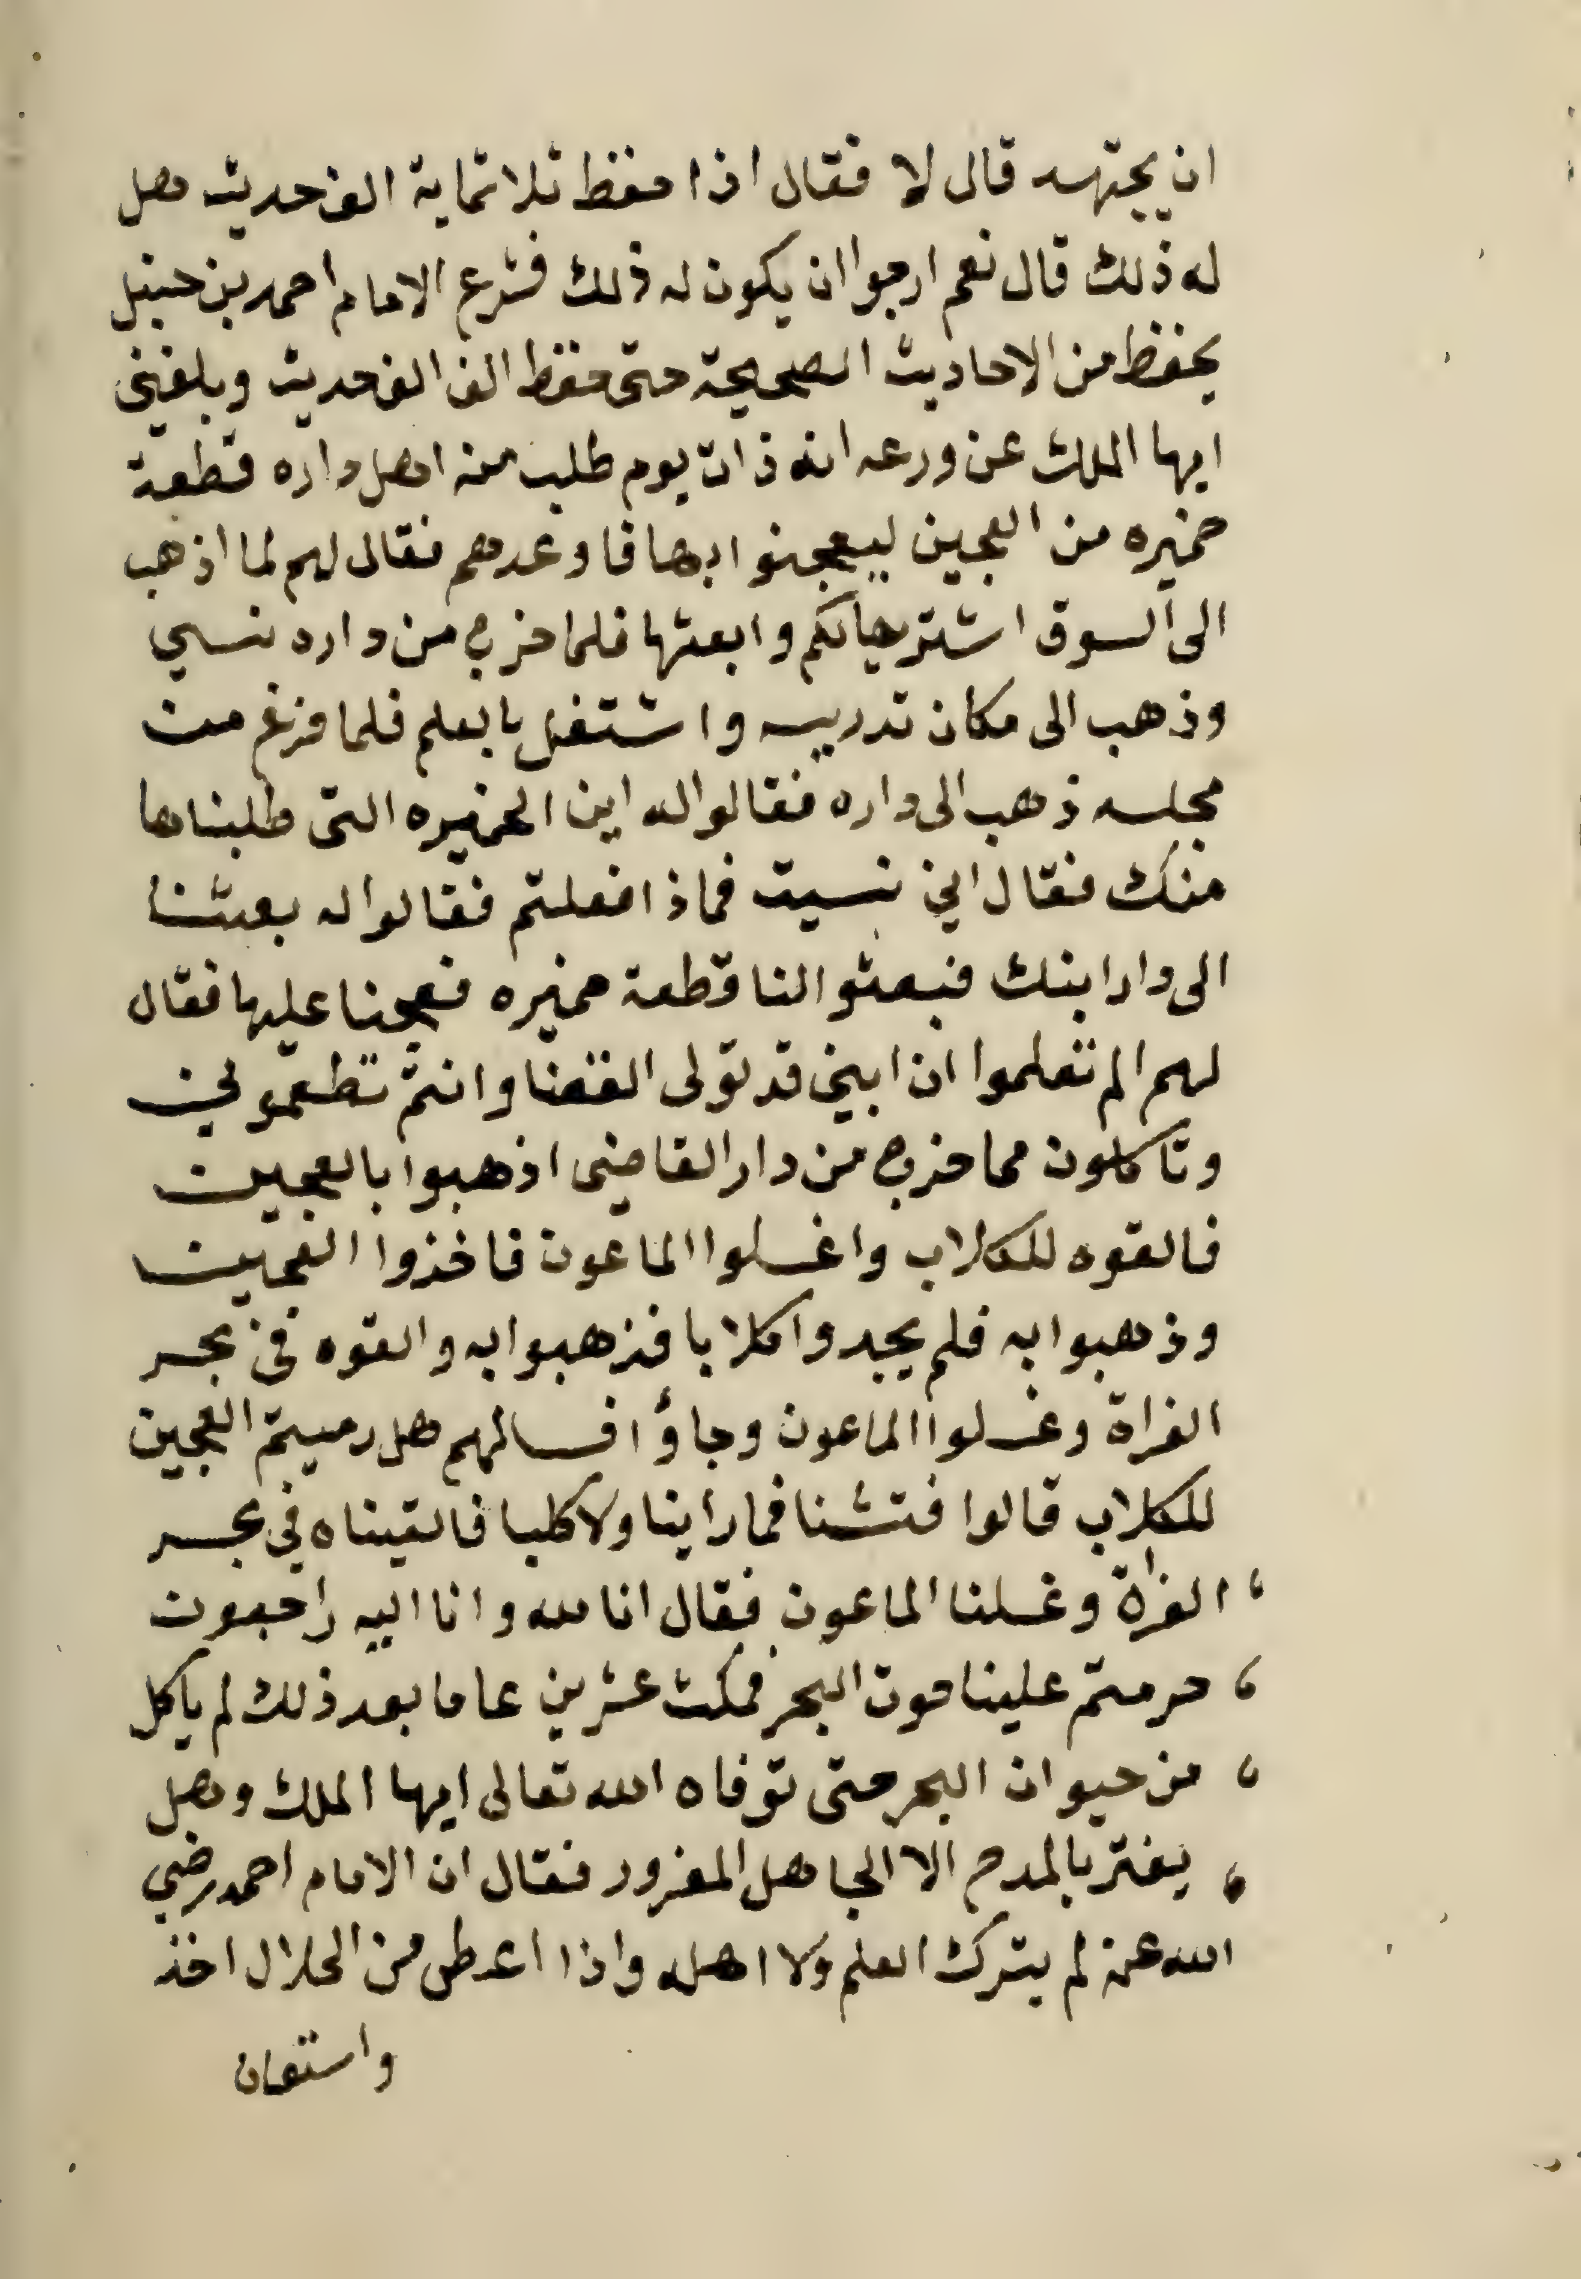 ان يجتهد قال لا فقال اذا حفظ ثلاثماية الف حديث هل
له ذلك قال نعم ارجوا ان يكون له ذلك فشرع الامام احمد بن حنبل
يحفظ من الاحاديث الصحيحة حتى حفظ الف الف حديث وبلغني
ايها الملك عن ورعه انه ذات يوم طلب منه اهل داره قطعة
خميره من العجين ليعجنوا بها فاوعدهم فقال لهم لما اذهب
الى السوق اشتريها لكم وابعثها فلما خرج من داره نسي
وذهب الى مكان تدريسه واشتغل بالعلم فلما فرغ من
مجلسه ذهب الى داره فقالوا له اين الخميره التى طلبناها
منك فقال اني نسيت فماذا فعلتم فقالوا له بعثنا
الى دار ابنك فبعثوا لنا قطعة خميره فعجنا عليها فقال
لهم الم تعلموا ان ابني قد تولى القضا وانتم تطعموني
وتاكلون مما خرج من دار القاضى اذهبوا بالعجين
فالقوه للكلاب واغسلوا الماعون فاخذوا العجين
وذهبوا به فلم يجدوا كلابا فذهبوا به والقوه في بحر
الفراة وغسلوا الماعون وجاؤا فسالهم هل رميتم العجين
للكلاب قالوا فتشنا فما راينا ولا كلبا فالقيناه في بحر
الفراة وغسلنا الماعون فقال انا لله وانا اليه راجعون
حرمتم علينا حوت البحر فمكث عشرين عاما بعد ذلك لم ياكل
من حيوان البحر حتى توفاه الله تعالى ايها الملك وهل
يغتر بالمدح الا الجاهل المغرور فقال ان الامام احمد رضي
الله عنه لم يترك العلم ولا اهله واذا اعطى من الحلال اخذ
واستعان